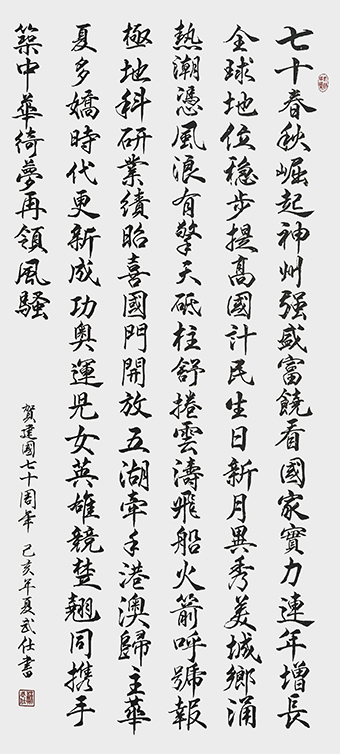 七十春秋崛起神州强盛富饒看國家實力連年增長
全球地位穩步提高國計民生日新月異秀美城鄉涌
熱潮憑風浪有擎天砥柱舒捲雲濤飛船火箭呼號報
極地科研業績昭喜國門開放五湖牽手港澳歸主華
夏多嬌時代更新成功奧運児女英雄競楚翹同携手
築中華綺夢再領風騷
賀建國七十周年 己亥年夏武仕書